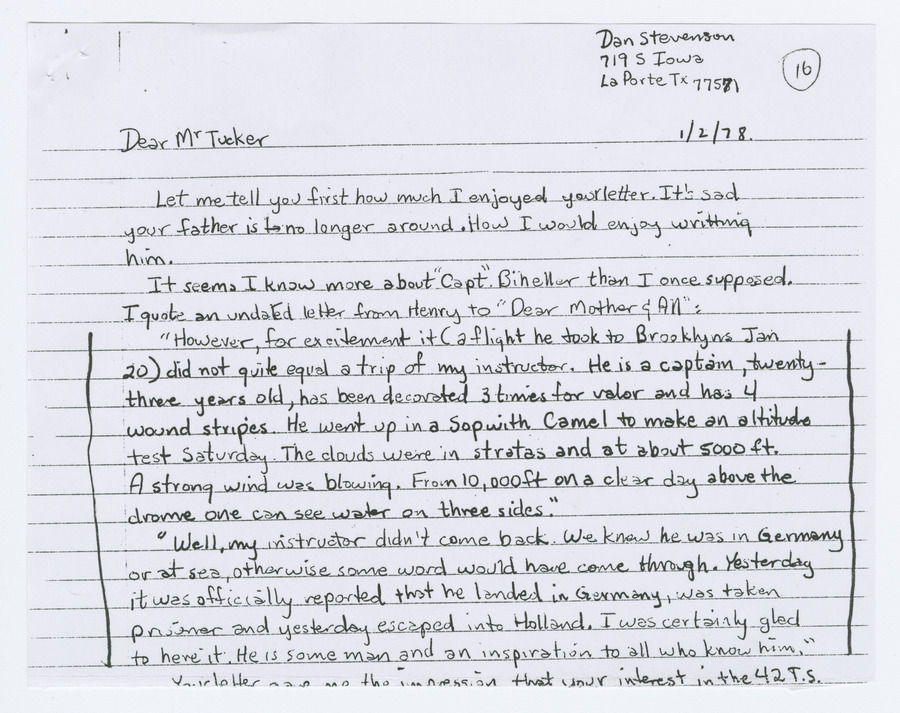 Dan Stevenson
719 S Iowa
La Porte Tx 77571
16
Dear Mr Tucker
1/2/78.
Let me tell you first how much I enjoyed your letter. It's sad
your father is to no longer around. How I would enjoy writting
him.
It seems I know more about "Capt" Biheller than I once supposed.
I quote an undated letter from Henry to "Dear Mother & All":
"However, for excitement it (a flight he took to Brooklyns Jan
20) did not quite equal a trip of my instructor. He is a captain, twenty-
three years old, has been decorated 3 times for valor and has 4
wound stripes. He went up in a Sopwith Camel to make an altitude
test Saturday. The clouds were in stratas and at about 5000 ft.
A strong wind was blowing. From 10,000 ft on a clear day above the
drome one can see water on three sides."
"Well, my instructor didn't come back. We knew he was in Germany
or at sea, otherwise some word would have come through. Yesterday
it was officially reported that he landed in Germany, was taken
prisoner and yesterday escaped into Holland. I was certainly glad
to here it. He is some man and an inspiration to all who know him."
Your letter gave me the impression that your interest in the 42 T.S.